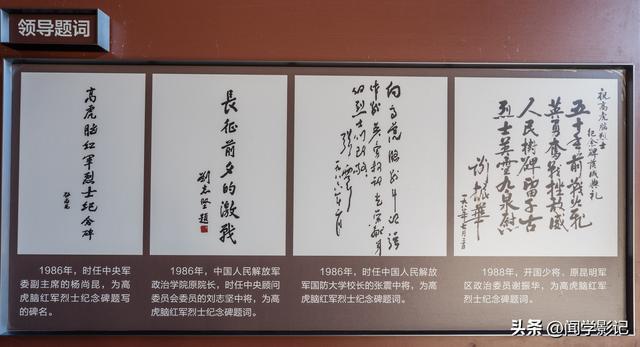 领导题词
高虎脑红军烈士纪念碑
長征前夕的激战
劉志堅題
的烈士们致敬
张震
祝高虎脑烈士
纪念碑落成典礼
五十年前战火飞
英勇奮战挫敌威
人民樹碑留千古
烈士英灵九泉慰
谢振华
1986年，时任中央军
委副主席的杨尚昆，为高
虎脑红军烈士纪念碑题写
的碑名。
1986年，中国人民解放军
政治学院原院长，时任中央顾问
委员会委员的刘志坚中将，为高
虎脑红军烈士纪念碑题词。
1986年，时任中国人民解放
军国防大学校长的张震中将，为
高虎脑红军烈士纪念碑题词。
1988年，开国少将，原昆明军
区政治委员谢振华，为高虎脑红军
烈士纪念碑题词。
头条 @闻学影记